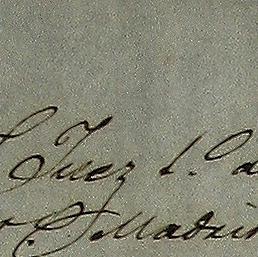 Juez 1.º d
Madri